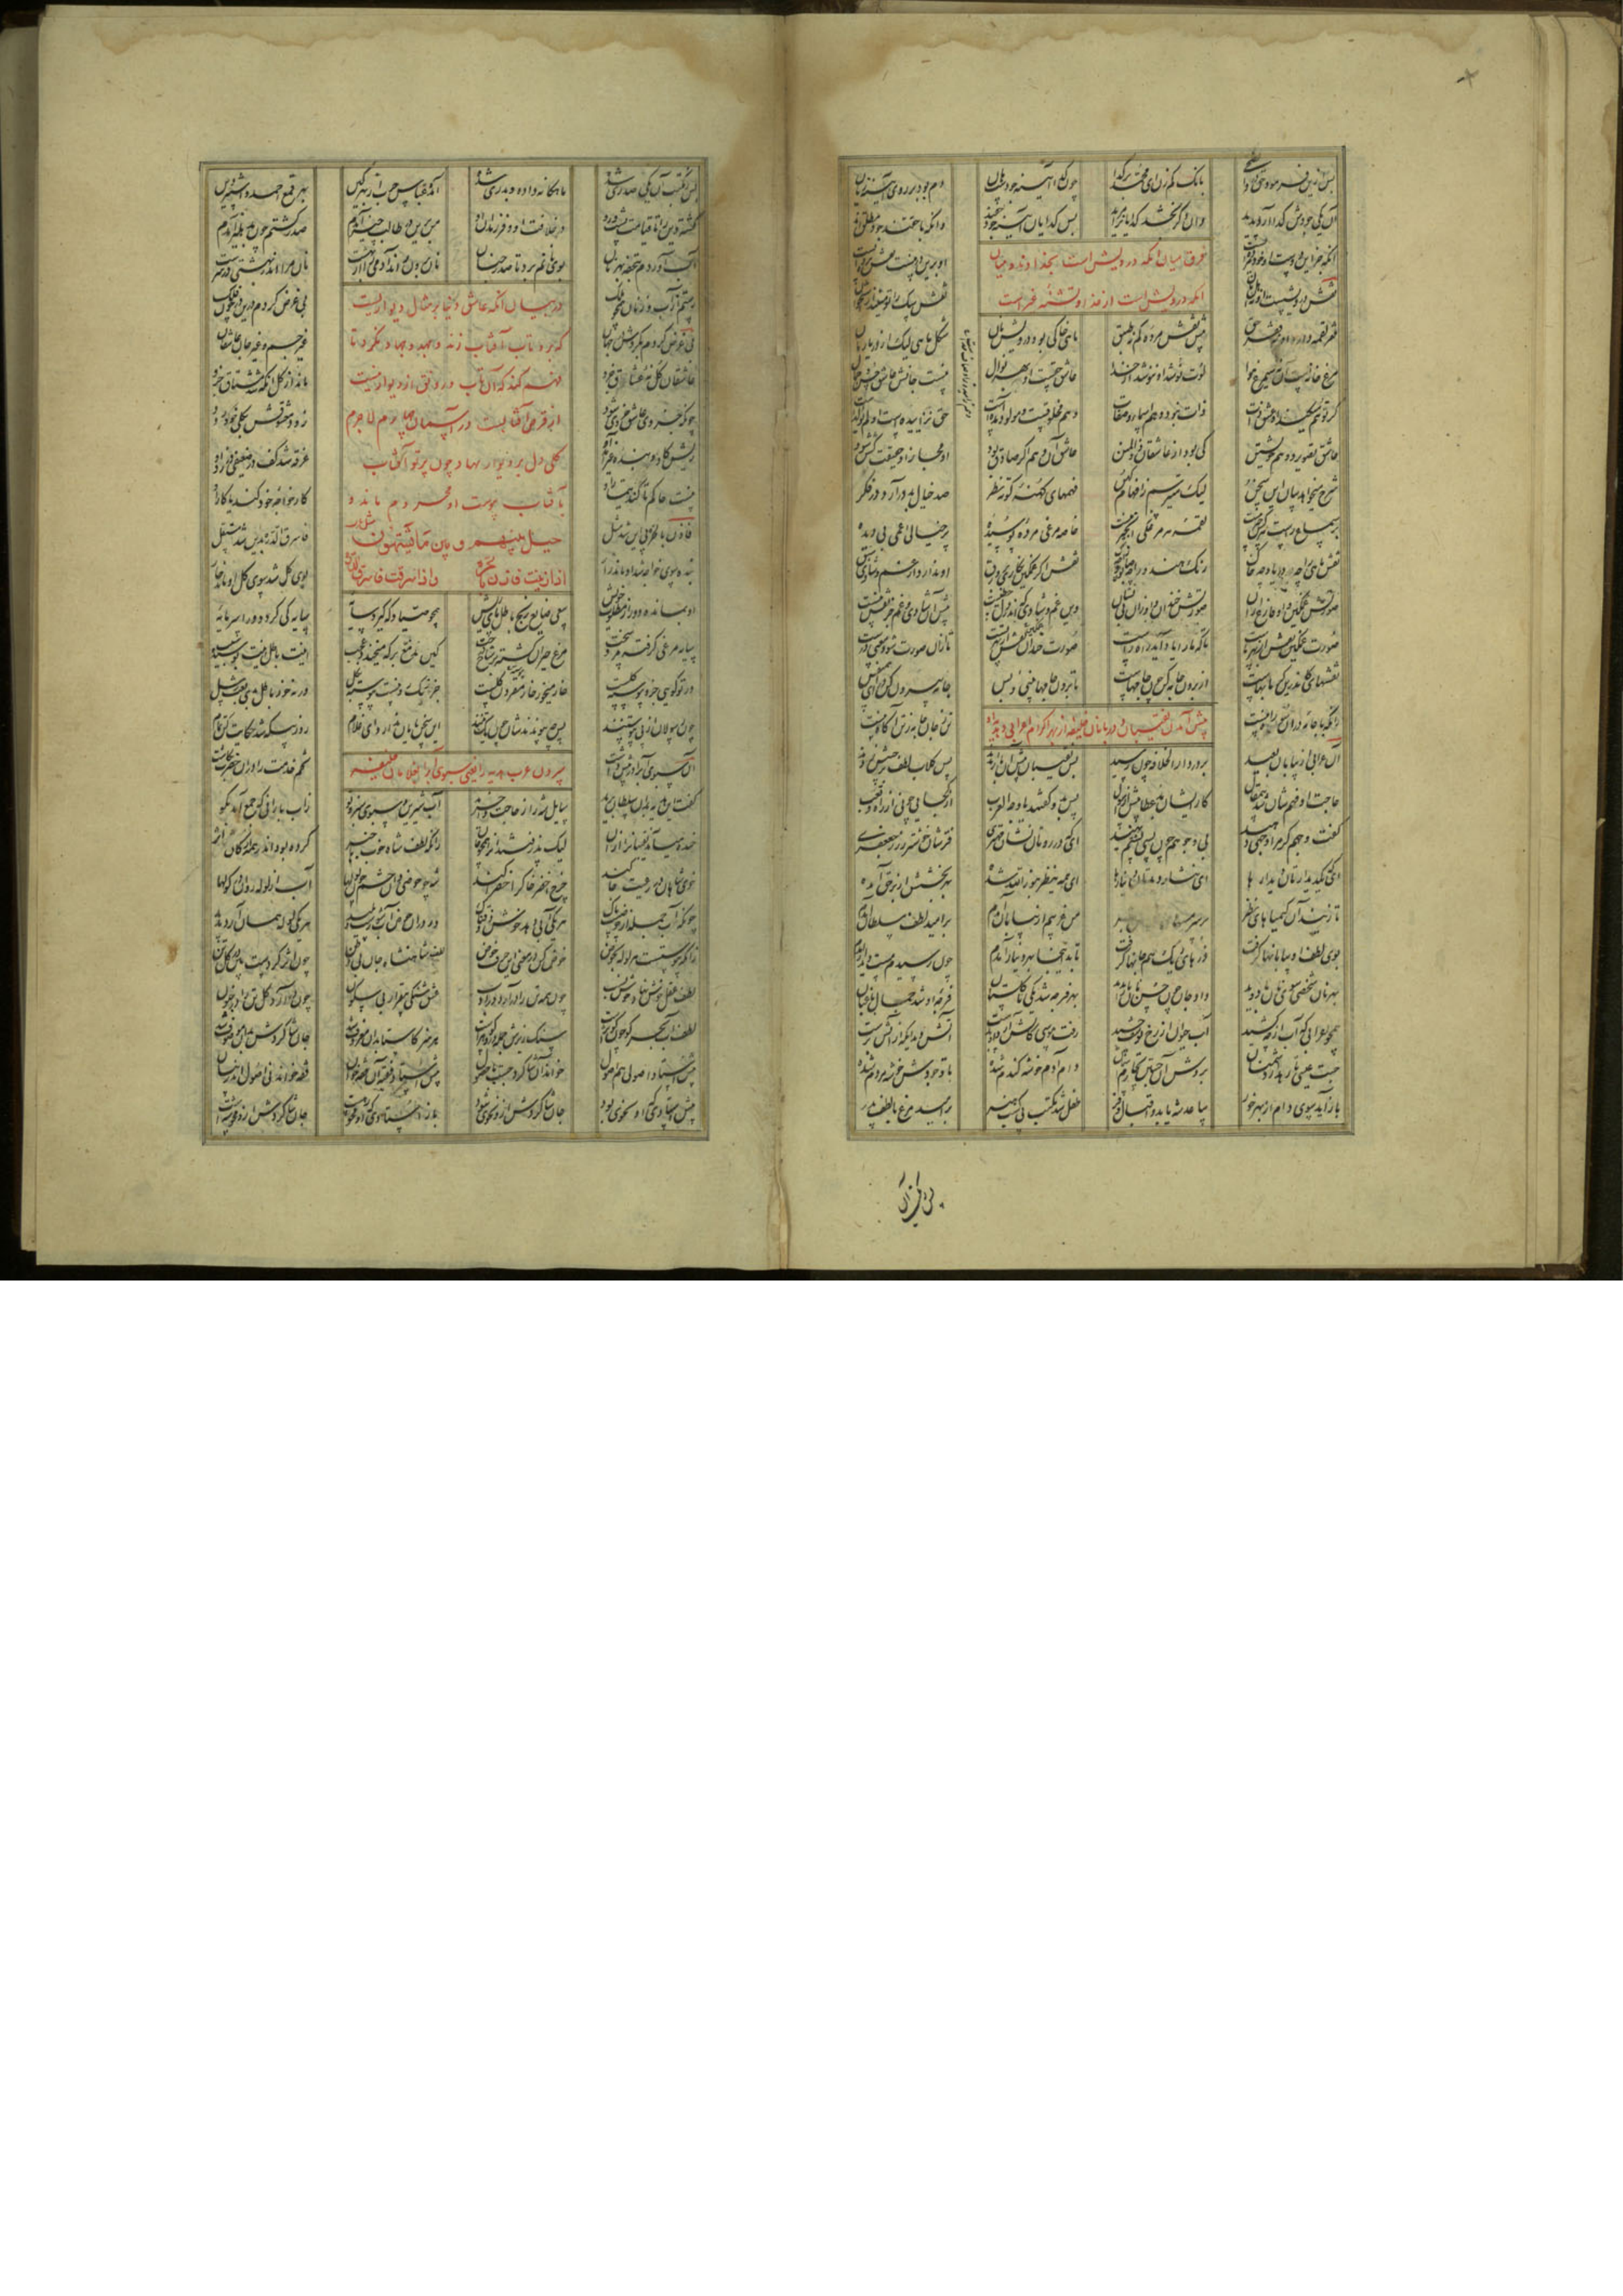 پس ازین فرمود حق در والضحی بانگ کم زن ای محمد بر گدا چون گدا آیینه جودست هان دم بود بر روی آیینه زیان
آن یکی جودش گدا آرد پدید وان دگر بخشد گدایان را مزید پس گدایان آینه جود حقند وانکه با حقند جود مطلقند
وانکه جز این دوست او خود مرده ایست او برین در نیست نقش پرده ایست
فرق میان آنکه درویش است بخدا و تشنه خدا و میان
آنکه درویش است از خدا و تشنه غیر است
نقش درویشست او نه اهل نان نقش سگ را تو مینداز استخوان
فقر لقمه دارد او نه فقر حق پیش نقش مرده کم نه طبق ماهی خاکی بود درویش نان شکل ماهی لیک از دریا رمان
مرغ خانه است او نه سیمرغ هوا لوت نوشد او ننوشد از خدا عاشق حقست او بهر نوال نیست جانش عاشق حسن و جمال
گر توهم میکند او عشق ذات ذات نبود وهم اسما و صفات وهم مخلوقست و مولود آمدست حق نزاییده است او لم یولدست
عاشق تصویر و وهم خویشتن کی بود از عاشقان ذوالمنن عاشق آن وهم اگر صادق بود
شرح میخواهد بیان این سخن لیک میترسم ز افهام کهن فهمهای کهنه کوته نظر صد خیال بد درآرد در فکر
بر سماع راست هر کس چیر نیست لقمه هر مرغکی انجیر نیست خاصه مرغی مرده پوسیده پر خیالی اعمی بی دیده
نقش ماهی را چه دریا و چه خاک رنگ هندو را چه صابون و چه زاک نقش اگر غمگین نگاری بر ورق او ندارد از غم و شادی سبق
صورتش غمگین و او فارغ از آن صورتش خندان و او زان بی نشان وین غم و شادی که اندر دل حقیست پیش آن شادی و غم جز نقش نیست
صورت غمگین نقش از بهر ماست تا که ما را یاد آید راه راست صورت خندان نقش از بهر تست تا از آن صورت شود معنی درست
نقشهایی کاندرین گرمابهاست از برون جامه کن چون جامهاست تا برونی جامها بینی و بس جامه بیرون کن درآ ای همنفس
زانکه با جامه درون سو راه نیست تن ز جان جامه ز تن آگاه نیست
پیش آمدن نقیبان و دربانان خلیفه از بهر اکرام اعرابی و هدیه او
آن عرابی از بیابان بعید بر در دار الخلافه چون رسید پس نقیبان پیش او باز آمدند بس گلاب لطف بر جیبش زدند
حاجت او فهمشان شد بی مقال کار ایشان بد عطا پیش از سوال پس بدو گفتند یا وجه العرب از کجایی چونی از راه و تعب
گفت وجهم گر مرا وجهی دهید بی وجوهم چون پس پشتم نهید ای که در روتان نشان مهتری فرتان خوشتر ز زر جعفری
ای که یک دیدارتان دیدارها ای نثار دیدتان دینارها ای همه ینظر بنور الله شده بهر بخشش از بر حق آمده
تا زنید آن کیمیاهای نظر بر سر من غریبم از بیابان آمدم بر امید لطف سلطان آمدم
بوی لطف او بیابانها گرفت ذرهای ریگ هم جانها گرفت تا بدینجا بهر دینار آمدم چون رسیدم مست دیدار آمدم
بهر نان شخصی سوی نانبا دوید داد جان چون حسن نانبا را بدید بهر فرجه شد یکی تا گلستان فرجه او شد جمال باغبان
همچو اعرابی که آب از چه کشید آب حیوان از رخ یوسف چشید رفت موسی کاتش آرد او بدست آتشی دید او که از آتش برست
جست عیسی تا رهد از دشمنان بردش آن جستن بچارم آسمان دام آدم خوشه گندم شده تا وجودش خوشه مردم شده
باز آید سوی دام از بهر خور ساعد شه یابد و اقبال و فر طفل شد مکتب پی کسب هنر بر امید مرغ با لطف پدر
پس ز مکتب آن یکی صدری شده ماهگانه داده و بدری شده آمده عباس حرب از بهر کین بهر قمع احمد و استیز دین
گشته دین را تا قیامت پشت و رو در خلافت او و فرزندان او من برین در طالب چیز آمدم صدر گشتم چون بدهلیز آمدم
آب آوردم بتحفه بهر نان بوی نانم برد تا صدر جنان نان برون راند آدمی را از بهشت نان مرا اندر بهشتی در سرشت
رستم از آب و ز نان همچون ملک بی غرض گردم برین در چون فلک
بی غرض نبود بگردش در جهان غیر جسم و غیر جان عاشقان
در بیان آنکه عاشق دنیا بر مثال دیواریست
که برو تاب آفتاب زند و جهد و جهاد نکرد تا
فهم کند که آن تاب و رونق از دیوار نیست
از قرص آفتابست در آسمان چهارم لا جرم
کلی دل بر دیوار نهاد چون پرتو آفتاب
بآفتاب پیوست او محروم ماند و
حیل بینهم و بین ما یشتهون
عاشقان کل نه عشاق جزو ماند از کل آنکه شد مشتاق جزو
چونکه جزوی عاشق جزوی شود زود معشوقش بکل خود رود
ریش گاو و بنده غیر آمد او غرقه شد کف در ضعیفی در زد او
نیست حاکم تا کند تیمار او کار خواجه خود کند یا کار او
فازن بالحره پی این شد مثل فاسرق الدره بدین شد منتقل
بنده سوی خواجه شد او ماند زار بوی گل شد سوی گل او ماند خار
او بمانده دور از مطلوب خویش سعی ضایع رنج باطل پای ریش همچو صیادی که گیرد سایه سایه کی گردد ورا سرمایه
سایه مرغی گرفته مرد سخت مرغ حیران گشته بر شاخ درخت کین مدمغ بر که میخندد عجب اینت باطل اینت پوسیده سبب
ور تو گویی جزو پیوسته کلست خار میخور خار مقرون گلست جز ز یک رو نیست پیوسته بکل ورنه خود باطل بدی بعث رسل
چون رسولان از پی پیوستنند پس چه پیوندندشان چون یک تنند این سخن پایان ندارد ای غلام روز بیگه شد حکایت کن تمام
سپردن عرب هدیه را یعنی سبوی آب را بغلامان خلیفه
آن سبوی آب را در پیش داشت تخم خدمت را در آن حضرت بکاشت
گفت این هدیه بدان سلطان برید سایل شه را ز حاجت وا خرید آب شیرین و سبوی سبز و نو ز آب بارانی که جمع آمد بگو
خنده میآمد نقیبان را از آن لیک پذرفتند آن را همچو جان زانکه لطف شاه خوب با خبر کرده بود اندر همه ارکان اثر
خوی شاهان در رعیت جا کند چرخ اخضر خاک را خضرا کند شه چو حوضی دان حشم چون لولها آب از لوله روان در کولها
چونکه آب جمله از حوضیست پاک هر یکی آبی دهد خوش ذوقناک ور در آن حوض آب شورست و پلید هر یکی لوله همان آرد پدید
زانکه پیوستست هر لوله بحوض خوض کن در معنی این حرف خوض لطف شاهنشاه جان بی وطن چون اثر کردست اندر کل تن
لطف عقل خوش نهاد خوش نسب چون همه تن را درآرد در ادب عشق شنگ بی قرار بی سکون چون درآرد کل تن را در جنون
لطف آب بحر کو چون کوثرست سنگ ریزش جمله در و گوهرست هر هنر کاستا بدان معروف شد جان شاگردش بدان موصوف شد
پیش استاد اصولی هم اصول خواند آن شاگرد چست با حصول پیش استاد فقیه آن فقه خوان فقه خواند نی اصول اندر بیان
پیش استادی که او نحوی بود جان شاگردش ازو نحوی شود باز استادی که او محو رهست جان شاگردش ازو محو شهست